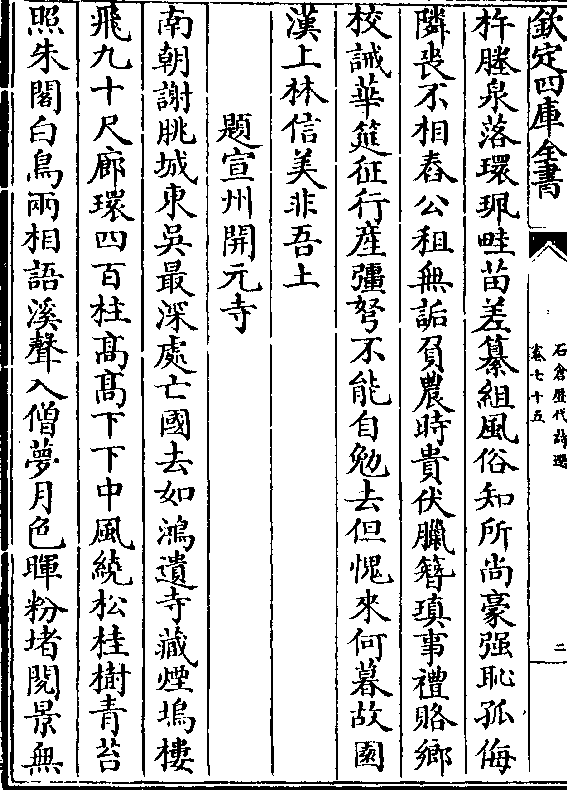 欽定四庫全書
石倉歷代詩選
卷七十五
二
杵塍泉落環珮畦苗差纂組風俗知所尚豪强恥孤侮
隣喪不相舂公租無詬負農時貴伏臘簪瑱事禮賂鄉
校誡華筵征行産彊弩不能自勉去但愧來何暮故園
漢上林信美非吾土
題宣州開元寺
南朝謝朓城東吳最深處亡國去如鴻遺寺藏煙塢樓
飛九十尺廊環四百柱髙髙下下中風繞松桂樹青苔
照朱閣白鳥兩相語溪聲入僧夢月色暉粉堵閱景無